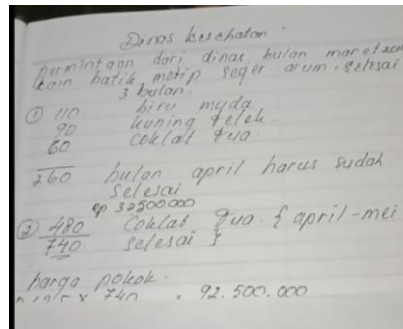 Dinas kesehatan
permintaan dari dinas bulan maret
kain batik motip seger arum. selesai
3 bulan.
① 110 biru muda
90 kuning telek.
60 coklat tua.
260 bulan april harus sudah
selesai
Rp 32500.000
② 480 Coklat tua. { april-mei
740 selesai }
harga pokok.
x 740 = 92.500.000